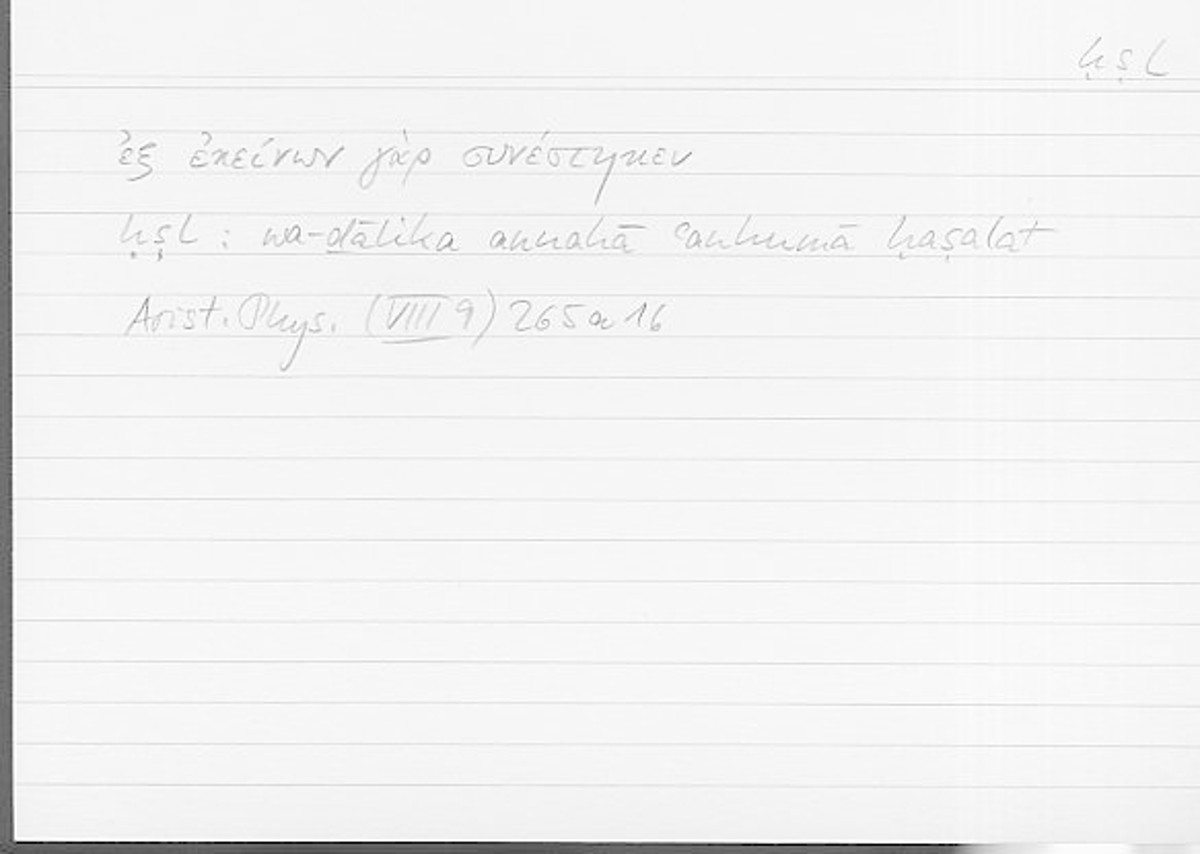 ḥṣl
ἐξ ἐκείνων γὰρ συνέστηκεν
ḥṣl : wa-ḏālika annahā ʿanhumā ḥaṣalat
Arist. Phys. (VIII 9) 265a16